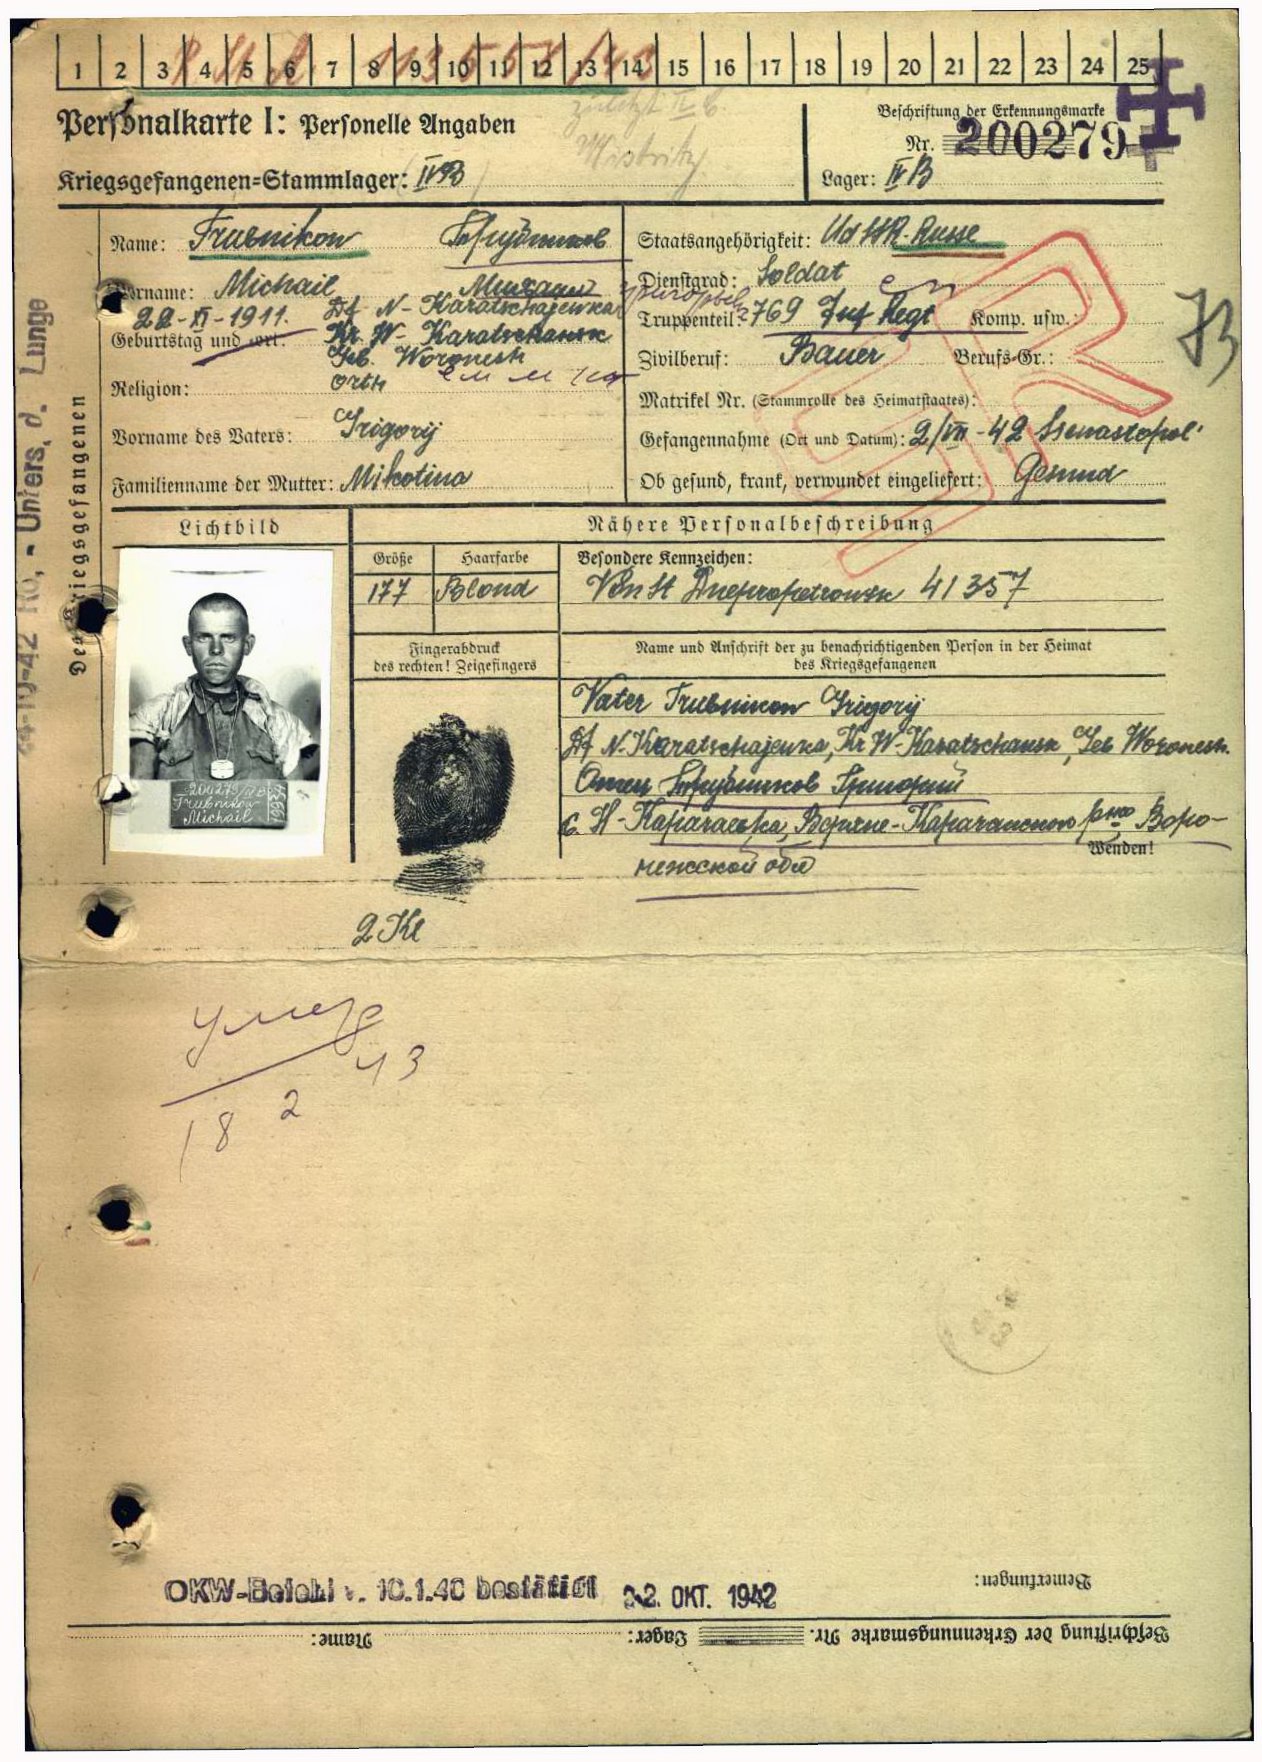 1 2 3 4 5 6 7 8 9 10 11 12 13 14 15 16 17 18 19 20 21 22 23 24 25
Personalkarte I: Personelle Angaben
zuletzt IV B
Beschriftung der Erkennungsmarke
Nr. 200279
Kriegsgefangenen=Stammlager: IVB
Lager: IVB
Name: Trubnikow Трубников
Vorname: Michail Михаил
22-XI-1911. Df N-Karatschajewka
Geburtstag und -ort: Kr. W-Karatschansk
Geb. Woronesh
Religion: orth
Vorname des Vaters: Grigorij
Familienname der Mutter: Mikotina
Staatsangehörigkeit: UdSSR. Russe
Dienstgrad: Soldat
Truppenteil: 769 Inf Regt Komp. usw.:
Zivilberuf: Bauer Berufs-Gr.:
Matrikel Nr. (Stammrolle des Heimatstaates):
Gefangennahme (Ort und Datum): 2/VII-42 Ssewastopol'
Ob gesund, krank, verwundet eingeliefert: Gesund
Des Kriegsgefangenen
Unters. d. Lunge
Lichtbild
Nähere Personalbeschreibung
Größe Haarfarbe Besondere Kennzeichen:
177 Blond Von St Dnepropetrowsk 41357
Fingerabdruck
des rechten! Zeigefingers
Name und Anschrift der zu benachrichtigenden Person in der Heimat
des Kriegsgefangenen
Vater Trubnikow Grigorij
Df N-Karatschajewka, Kr W-Karatschansk, Geb Woronesh.
Отец Трубников Григорий
с. Н-Карачаевка, Верхне-Карачанского р-на Воро-
Wenden!
нежской обл
200279/IVB
Trubnikow
Michail
2 Kl
умер
18 2 43
OKW-Befehl v. 10.1.40 bestätigt 22. OKT. 1942
Bemerkungen:
Beschriftung der Erkennungsmarke Nr. Lager: Name: